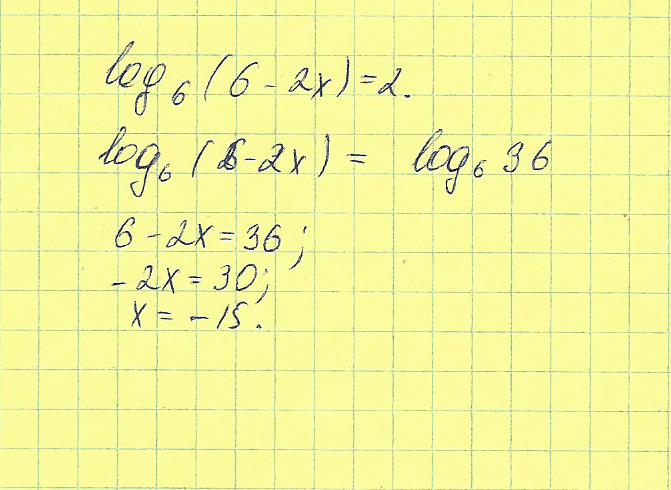 log₆(6 - 2x) = 2.
log₆(6 - 2x) = log₆ 36
6 - 2x = 36;
- 2x = 30;
x = - 15.